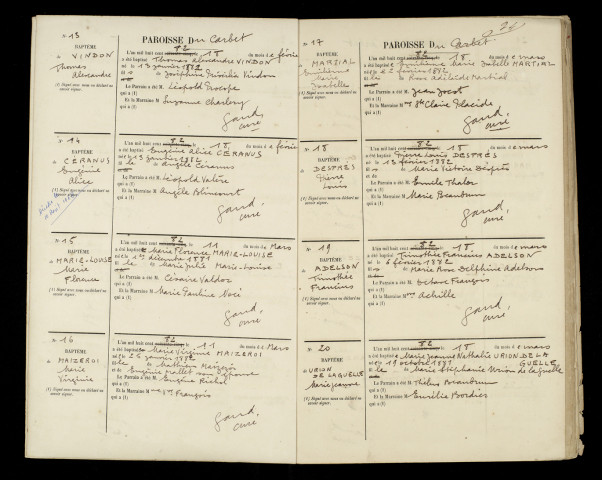 N° 13
PAROISSE Du Carbet
BAPTÊME
de VINDON
Thomas
Alexandre
(1) Signé avec nous ou déclaré ne savoir signer.
L'an mil huit cent 82 le 18 du mois de février
a été baptisé Thomas Alexandre VINDON
né le 13 janvier 1882
et de Joséphine Vindon
Le Parrain a été M. Léopold Procope
qui a (1)
Et la Marraine M Suzanne Charlery
qui a (1)
Gaud,
curé
N° 14
BAPTÊME
de CÉRANUS
Eugénie
Alice
(1) Signé avec nous ou déclaré ne savoir signer.
L'an mil huit cent 82 le 18 du mois de février
a été baptisé Eugénie Alice CÉRANUS
et de Angèle Céranus
Le Parrain a été M. Léopold Valère
qui a (1)
Et la Marraine M Angèle Blincourt
qui a (1)
Gaud,
curé
N° 15
BAPTÊME
de MARIE-LOUISE
Marie
Florence
(1) Signé avec nous ou déclaré ne savoir signer.
L'an mil huit cent 82 le 11 du mois de Mars
a été baptisé Marie Florence MARIE-LOUISE
né le 1er décembre 1881
et de Marie Julie Marie-Louise
Le Parrain a été M. Césaire Valdor
qui a (1)
Et la Marraine M Marie Pauline Noé
qui a (1)
Gaud,
curé
N° 16
BAPTÊME
de MAIZEROI
Marie
Virginie
(1) Signé avec nous ou déclaré ne savoir signer.
L'an mil huit cent 82 le 11 du mois de Mars
a été baptisé Marie Virginie MAIZEROI
né le 26 janvier 1882
de Mathieu Maizeroi
et de Eugénie Mallet son épouse
Le Parrain a été M. Eugène Richol
qui a (1)
Et la Marraine M François
qui a (1)
Gaud,
curé
N° 17
PAROISSE Du Carbet
BAPTÊME
de MARTIAL
Marie
Isabelle
(1) Signé avec nous ou déclaré ne savoir signer.
L'an mil huit cent 82 le 18 du mois de mars
a été baptisé Marie Isabelle MARTIAL
né le 2 février 1882
de Rose Adélaïde Martial
Le Parrain a été M. Jean Jocot
qui a (1)
Et la Marraine M Ste Claire Placide
qui a (1)
Gaud,
curé
N° 18
BAPTÊME
de DESPRÉS
Pierre
Louis
(1) Signé avec nous ou déclaré ne savoir signer.
L'an mil huit cent 82 le 18 du mois de mars
a été baptisé Pierre Louis DESPRÉS
né le 13 février 1882
de Marie Victoire Després
Le Parrain a été M. Emile Thalor
qui a (1)
Et la Marraine M Marie Beaubrun
qui a (1)
Gaud,
curé
N° 19
BAPTÊME
de ADELSON
Timothée
Francius
(1) Signé avec nous ou déclaré ne savoir signer.
L'an mil huit cent 82 le 18 du mois de mars
a été baptisé Timothée Francius ADELSON
né le 6 février 1882
de Marie Rose Delphine Adelson
Le Parrain a été M. Octave François
qui a (1)
Et la Marraine M Achille
qui a (1)
Gaud,
curé
N° 20
BAPTÊME
de URION
DE LA GUELLE
Marie Jeanne
(1) Signé avec nous ou déclaré ne savoir signer.
L'an mil huit cent 82 le 18 du mois de mars
a été baptisé Marie Jeanne Nathalie URION DE LA
GUELLE
né le 19 octobre 1881
de Marie Stéphanie Urion de la Guelle
Le Parrain a été M. Beaubrun
qui a (1)
Et la Marraine M Eurélie Bordier
qui a (1)